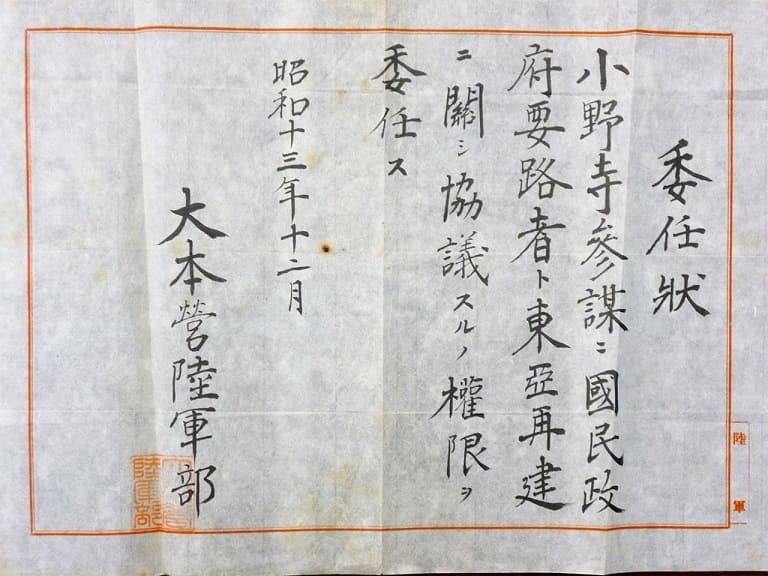 委任狀
小野寺參謀ニ國民政
府要路者ト東亞再建
ニ關シ協議スルノ權限ヲ
委任ス
昭和十三年十二月
大本營陸軍部
陸軍